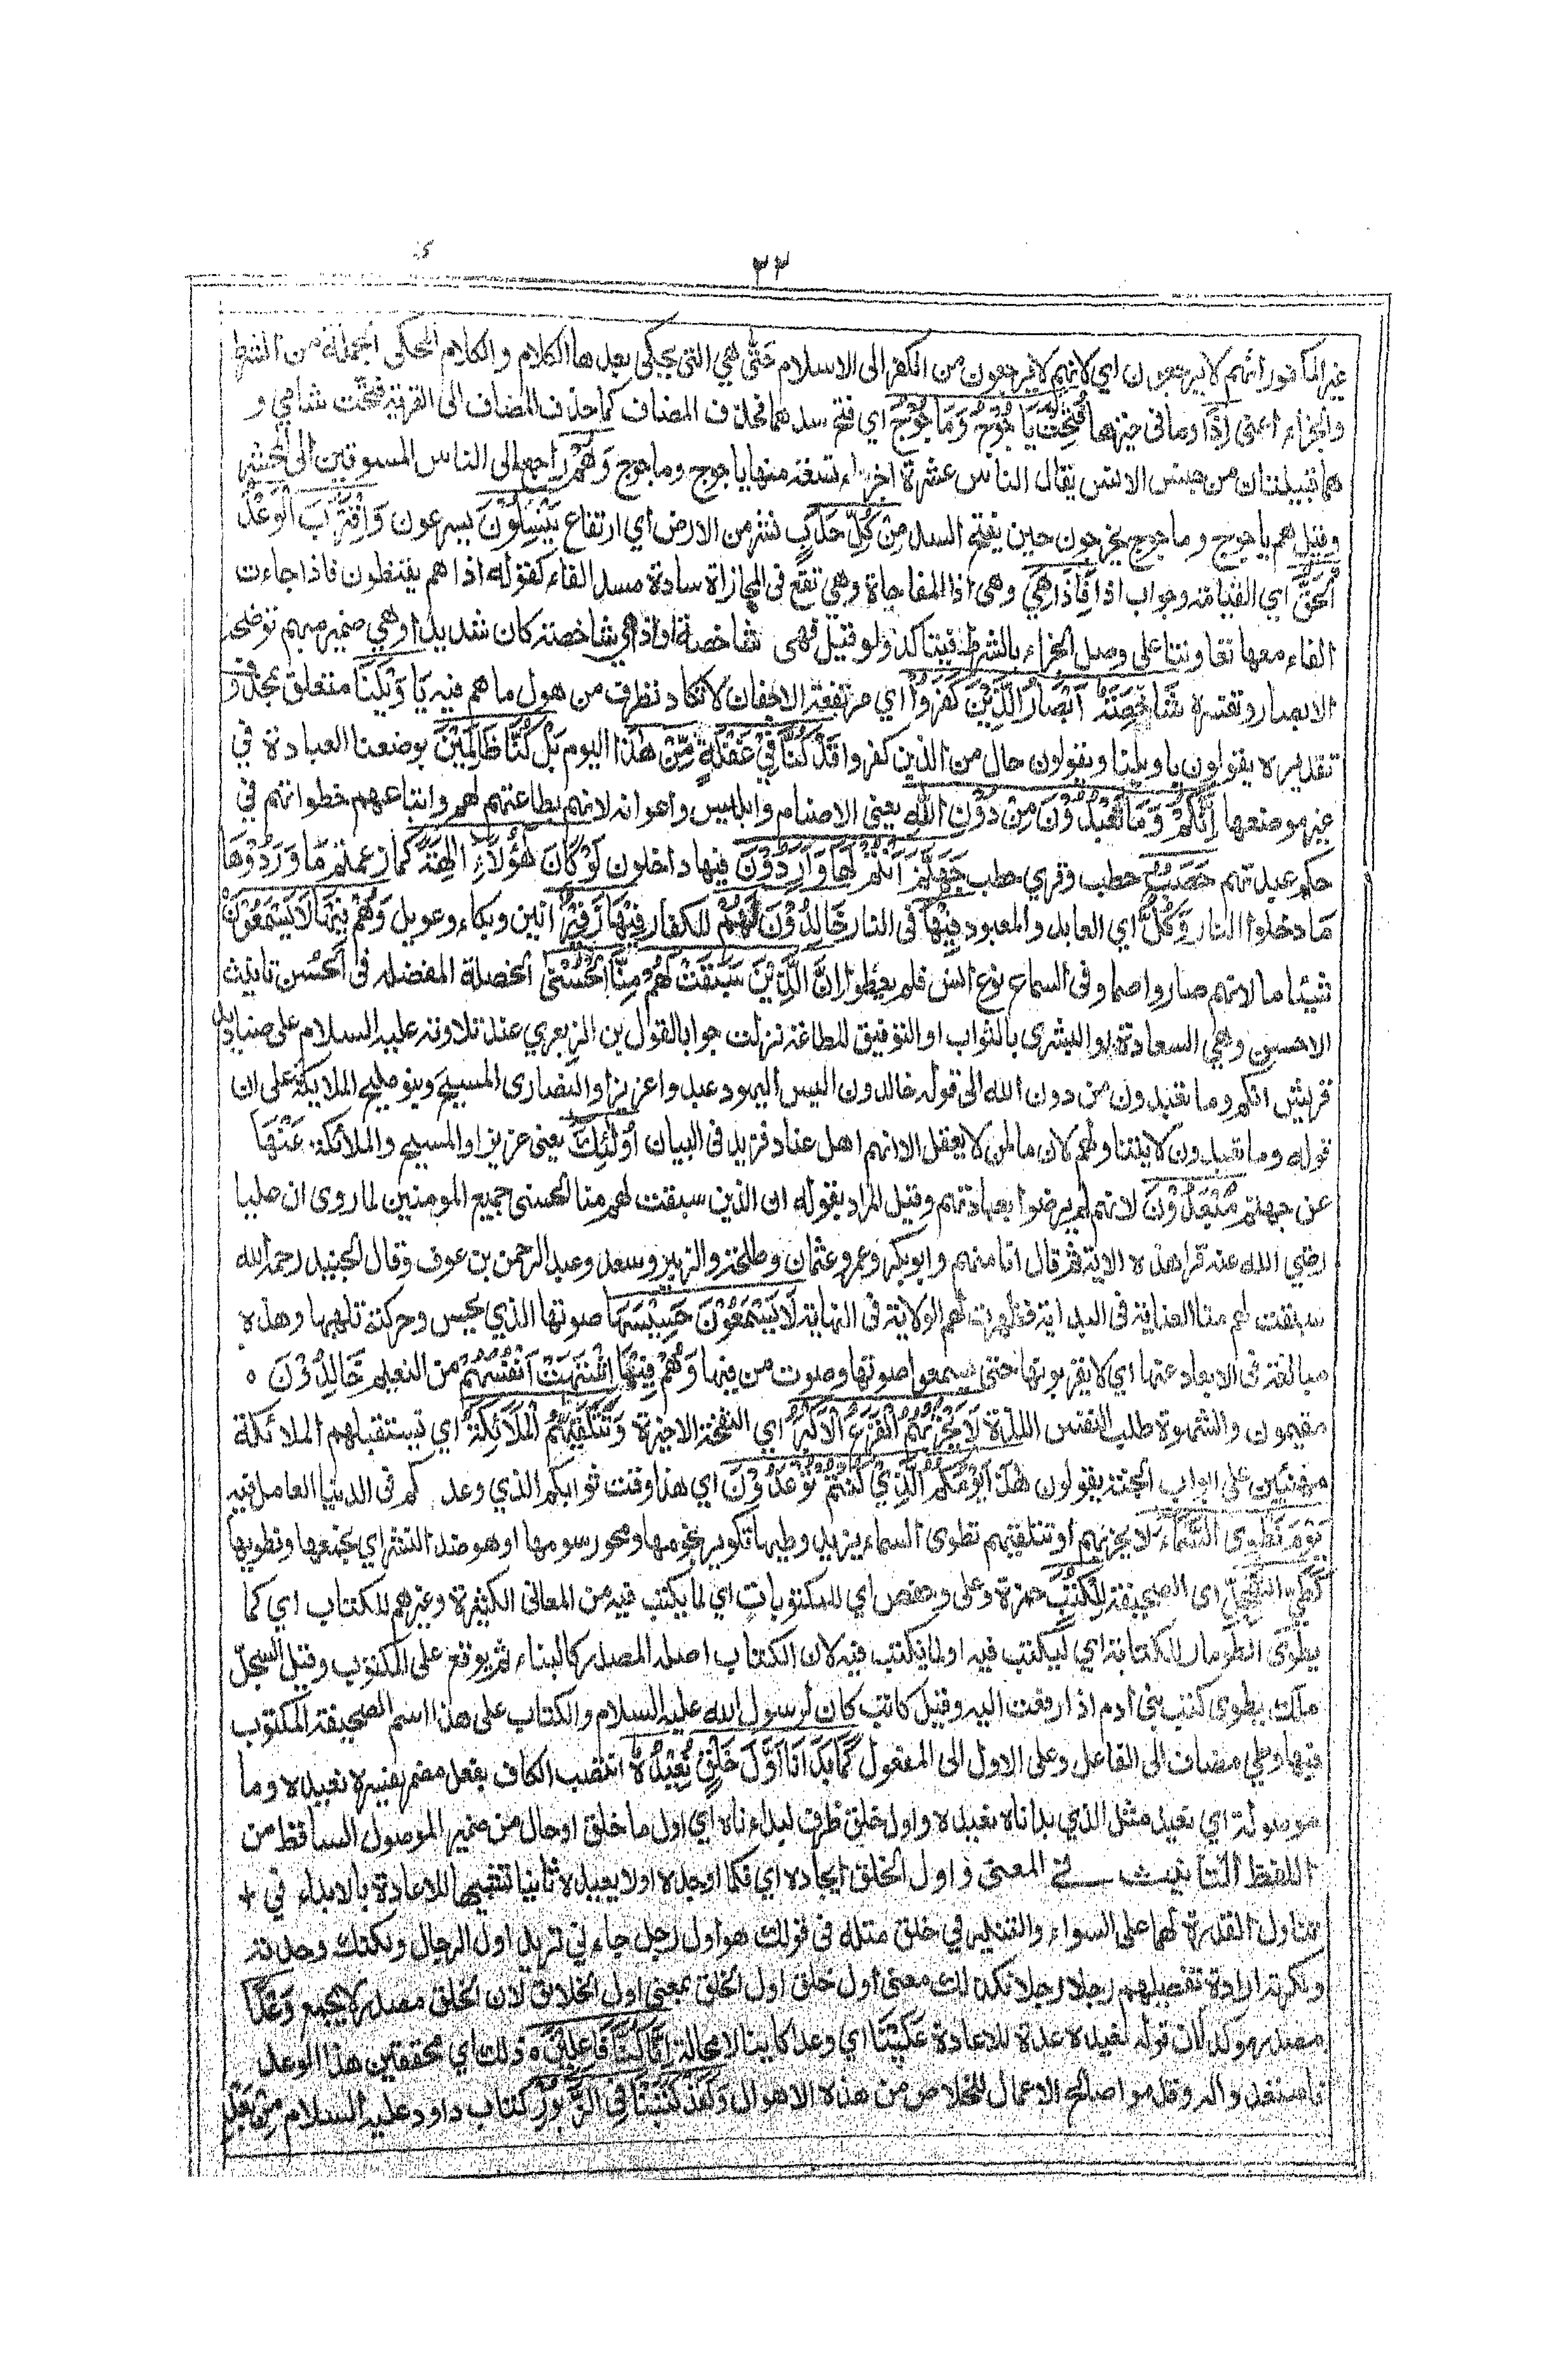 ٣٣
غير المكفور انهم لا يرجعون اي لانهم لا يرجعون من الكفر الى الاسلام حَتّٰى هي التي يحكى بعدها الكلام والكلام المحكى الجملة من الشرط
والجزاء اعنى اِذَا وما فى حيزها فُتِحَتْ يَاجُوْجُ وَمَاجُوْجُ اي فتح سدهما فحذف المضاف كما حذف المضاف الى القرية فتّحت شامي و
هما قبيلتان من جنس الانس يقال الناس عشرة اجزاء تسعة منها ياجوج وماجوج وَهُمْ راجع الى الناس المسوقين الى المحشر
وقيل هم ياجوج وماجوج يخرجون حين يفتح السد مِنْ كُلِّ حَدَبٍ نشز من الارض اي ارتفاع يَنْسِلُوْنَ يسرعون وَاقْتَرَبَ الْوَعْدُ
الْحَقُّ اي القيامة وجواب اذا فَاِذَا هِيَ وهى اذا المفاجاة وهى تقع فى المجازاة سادة مسد الفاء كقوله اذا هم يقنطون فاذا جاءت
الفاء معها تعاونتا على وصل الجزاء بالشرط فيتاكد ولو قيل فهى شاخصة او اذا هي شاخصة كان سديدا وهي ضمير مبهم توضحه
الابصار وتفسره شَاخِصَةٌ اَبْصَارُ الَّذِيْنَ كَفَرُوْا اي مرتفعة الاجفان لا تكاد تطرف من هول ما هم فيه يَا وَيْلَنَا متعلق بمحذوف
تقديره يقولون يا ويلنا ويقولون حال من الذين كفروا قَدْ كُنَّا فِيْ غَفْلَةٍ مِّنْ هٰذَا اليوم بَلْ كُنَّا ظَالِمِيْنَ بوضعنا العبادة في
غير موضعها اِنَّكُمْ وَمَا تَعْبُدُوْنَ مِنْ دُوْنِ اللهِ يعني الاصنام وابليس واعوانه لانهم بطاعتهم لهم واتباعهم خطواتهم في
حكم عبدتهم حَصَبُ حطب وقري حطب جَهَنَّمَ اَنْتُمْ لَهَا وَارِدُوْنَ فيها داخلون لَوْ كَانَ هٰؤُلَاءِ اٰلِهَةً كما زعمتم مَّا وَرَدُوْهَا
مَا دخلوا النار وَكُلٌّ اي العابد والمعبود فِيْهَا فى النار خَالِدُوْنَ لَهُمْ للكفار فِيْهَا زَفِيْرٌ انين وبكاء وعويل وَهُمْ فِيْهَا لَا يَسْمَعُوْنَ
شيئا ما لانهم صاروا صما وفى السماع نوع انس فلم يعطوا اِنَّ الَّذِيْنَ سَبَقَتْ لَهُمْ مِنَّا الْحُسْنٰى الخصلة المفضلة فى الحسن تانيث
الاحسن وهي السعادة او البشرى بالثواب او التوفيق للطاعة نزلت جوابا لقول بن الزبعرى عند تلاوته عليه السلام على صناديد
قريش انكم وما تعبدون من دون الله الى قوله خالدون اليس اليهود عبدوا عزيرا والنصارى المسيح وبنو مليح الملايكة على ان
قوله وما تعبدون لا يتناولهم لان ما لمن لا يعقل الا انهم اهل عناد فزيد فى البيان اُولٰئِكَ يعنى عزيرا والمسيح والملائكة عَنْهَا
عن جهنم مُبْعَدُوْنَ لانهم لم يرضوا بعبادتهم وقيل المراد بقوله ان الذين سبقت لهم منا الحسنى جميع المومنين لما روى ان عليا
رضي الله عنه قرا هذه الاية ثم قال انا منهم وابو بكر وعمر وعثمان وطلحة والزبير وسعد وعبد الرحمن بن عوف وقال الجنيد رحمه الله
سبقت لهم منا العناية فى البداية فظهرت لهم الولاية فى النهاية لَا يَسْمَعُوْنَ حَسِيْسَهَا صوتها الذي يحس وحركة تلهبها وهذه
مبالغة فى الابعاد عنها اي لا يقربونها حتى يسمعوا صوتها وصوت من فيها وَهُمْ فِيْهَا اشْتَهَتْ اَنْفُسُهُمْ من النعيم خَالِدُوْنَ ٥
مقيمون والشهوة طلب النفس اللذة لَا يَحْزُنُهُمُ الْفَزَعُ الْاَكْبَرُ اي النفخة الاخيرة وَتَتَلَقّٰهُمُ الْمَلَائِكَةُ اي تستقبلهم الملائكة
مهنئين على ابواب الجنة يقولون هٰذَا يَوْمُكُمُ الَّذِيْ كُنْتُمْ تُوْعَدُوْنَ اي هذا وقت ثوابكم الذي وعدكم فى الدنيا العامل فيه
يَوْمَ نَطْوِى السَّمَاءَ لا يحزنهم او تتلقيهم تطوى السماء يزيد وطيها تكوير نجومها ومحو رسومها او هو ضد النشر اي نجمعها ونطويها
كَطَيِّ السِّجِلِّ اى الصحيفة لِلْكُتُبِ حمزة وعلى وحفص اي للمكتوبات اي لما يكتب فيه من المعانى الكثيرة وغيرهم للكتاب اي كما
يطوى الطومار للكتابة اي ليكتب فيه او لما يكتب فيه لان الكتاب اصله المصدر كالبناء ثم يوقع على المكتوب وقيل السجلّ
ملك يطوى كتب بني ادم اذا رفعت اليه وقيل كاتب كان لرسول الله عليه السلام والكتاب على هذا اسم الصحيفة المكتوب
فيها وطي مضاف الى الفاعل وعلى الاول الى المفعول كَمَا بَدَاْنَا اَوَّلَ خَلْقٍ نُعِيْدُهٗ انتصب الكاف بفعل مضمر يفسره نعيده وما
موصولة اي نعيد مثل الذي بداناه نعيده واول خلق ظرف لبداناه اي اول ما خلق او حال من ضمير الموصول الساقط من
اللفظ الثابت في المعنى واول الخلق ايجاده اي فكما اوجده اولا يعيده ثانيا تشبيها للاعادة بالابداء في
تناول القدرة لهما على السواء والتنكير في خلق مثله فى قولك هو اول رجل جاءني تريد اول الرجال ولكنك وحدته
ونكرته ارادة تفصيلهم رجلا رجلا فكذلك معنى اول خلق اول الخلق بمعنى اول الخلائق لان الخلق مصدر لا يجمع وَعْدًا
مصدر موكد لان قوله نعيده عدة للاعادة عَلَيْنَا اي وعدا كاينا لا محالة اِنَّا كُنَّا فَاعِلِيْنَ ٥ ذلك اي محققين هذا الوعد
فاستعدوا له وقدموا صالح الاعمال للخلاص من هذه الاهوال وَلَقَدْ كَتَبْنَا فِي الزَّبُوْرِ كتاب داود عليه السلام مِنْ بَعْدِ